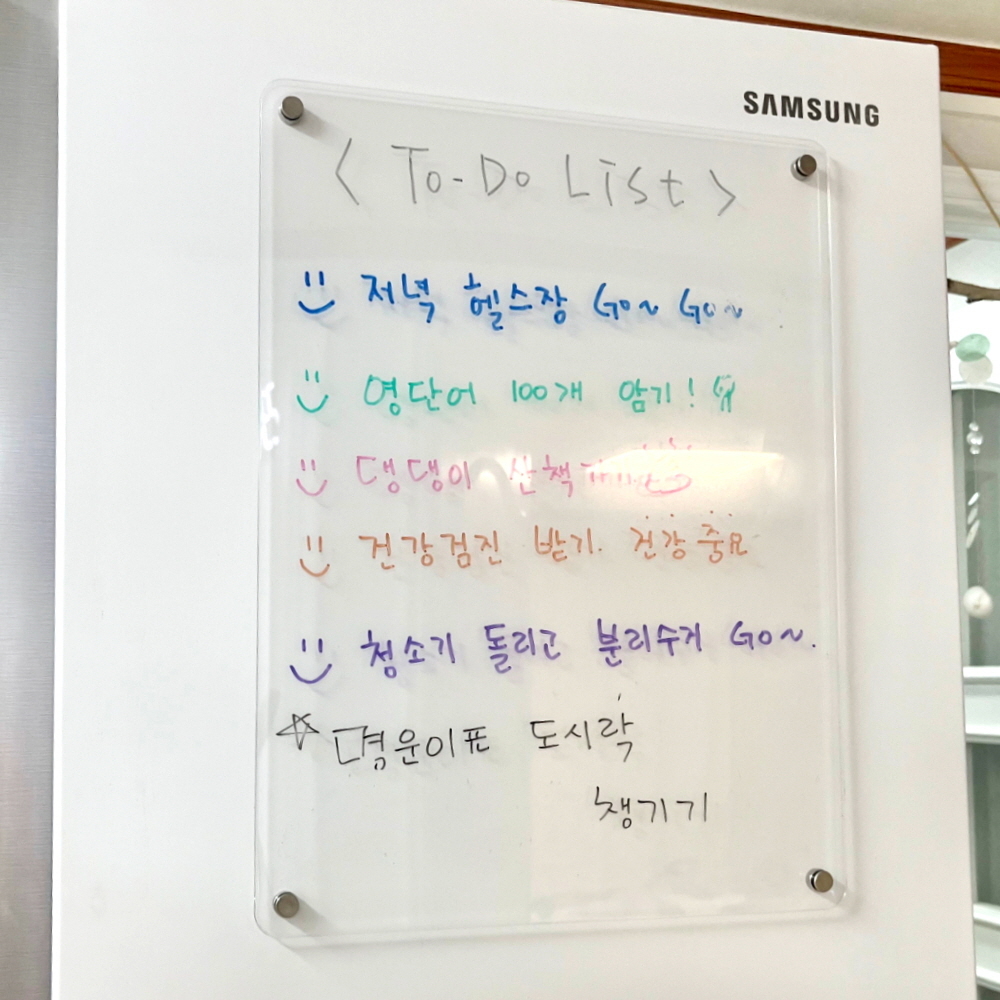 SAMSUNG
< To-Do List >
저녁 헬스장 Go~ Go~
영단어 100개 암기!
댕댕이 산책
건강검진 받기. 건강 중요
청소기 돌리고 분리수거 GO~.
☆ 명운이표 도시락
챙기기